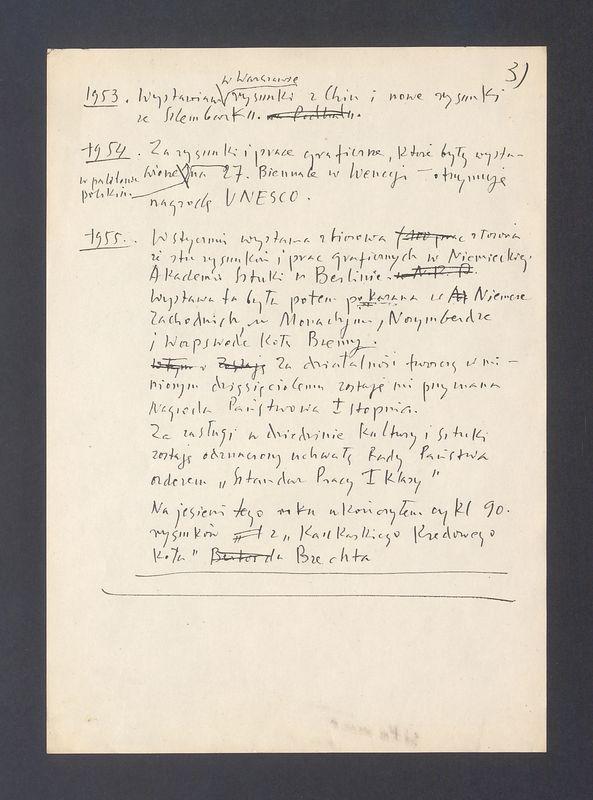 3)
w Warszawie
1953. Wystawiam rysunki z Chin i nowe rysunki
ze Szlembarku. na Podhalu.
1954. Za rysunki i prace graficzne, które były wysta-
w pawilonie wione na 27. Biennale w Wenecji – otrzymuję
polskim
nagrodę UNESCO.
1955. W styczniu wystawa zbiorowa prac złożona
ze stu rysunków i prac graficznych w Niemieckiej
Akademii Sztuki w Berlinie. N.R.D.
Wystawa ta była potem pokazana w Niemcze
Zachodnich, w Monachjum, Norymberdze
i Worpswede koło Bremy.
zostaję Za działalność twórczą w mi-
nionym dziesięcioleciu zostaje mi przyznana
Nagroda Państwowa I stopnia.
Za zasługi w dziedzinie kultury i sztuki
zostaję odznaczony uchwałą Rady Państwa
orderem „Sztandar Pracy I klasy"
Na jesieni tego roku ukończyłem cykl 90.
rysunków z „Kaukaskiego Kredowego
koła" Brechta